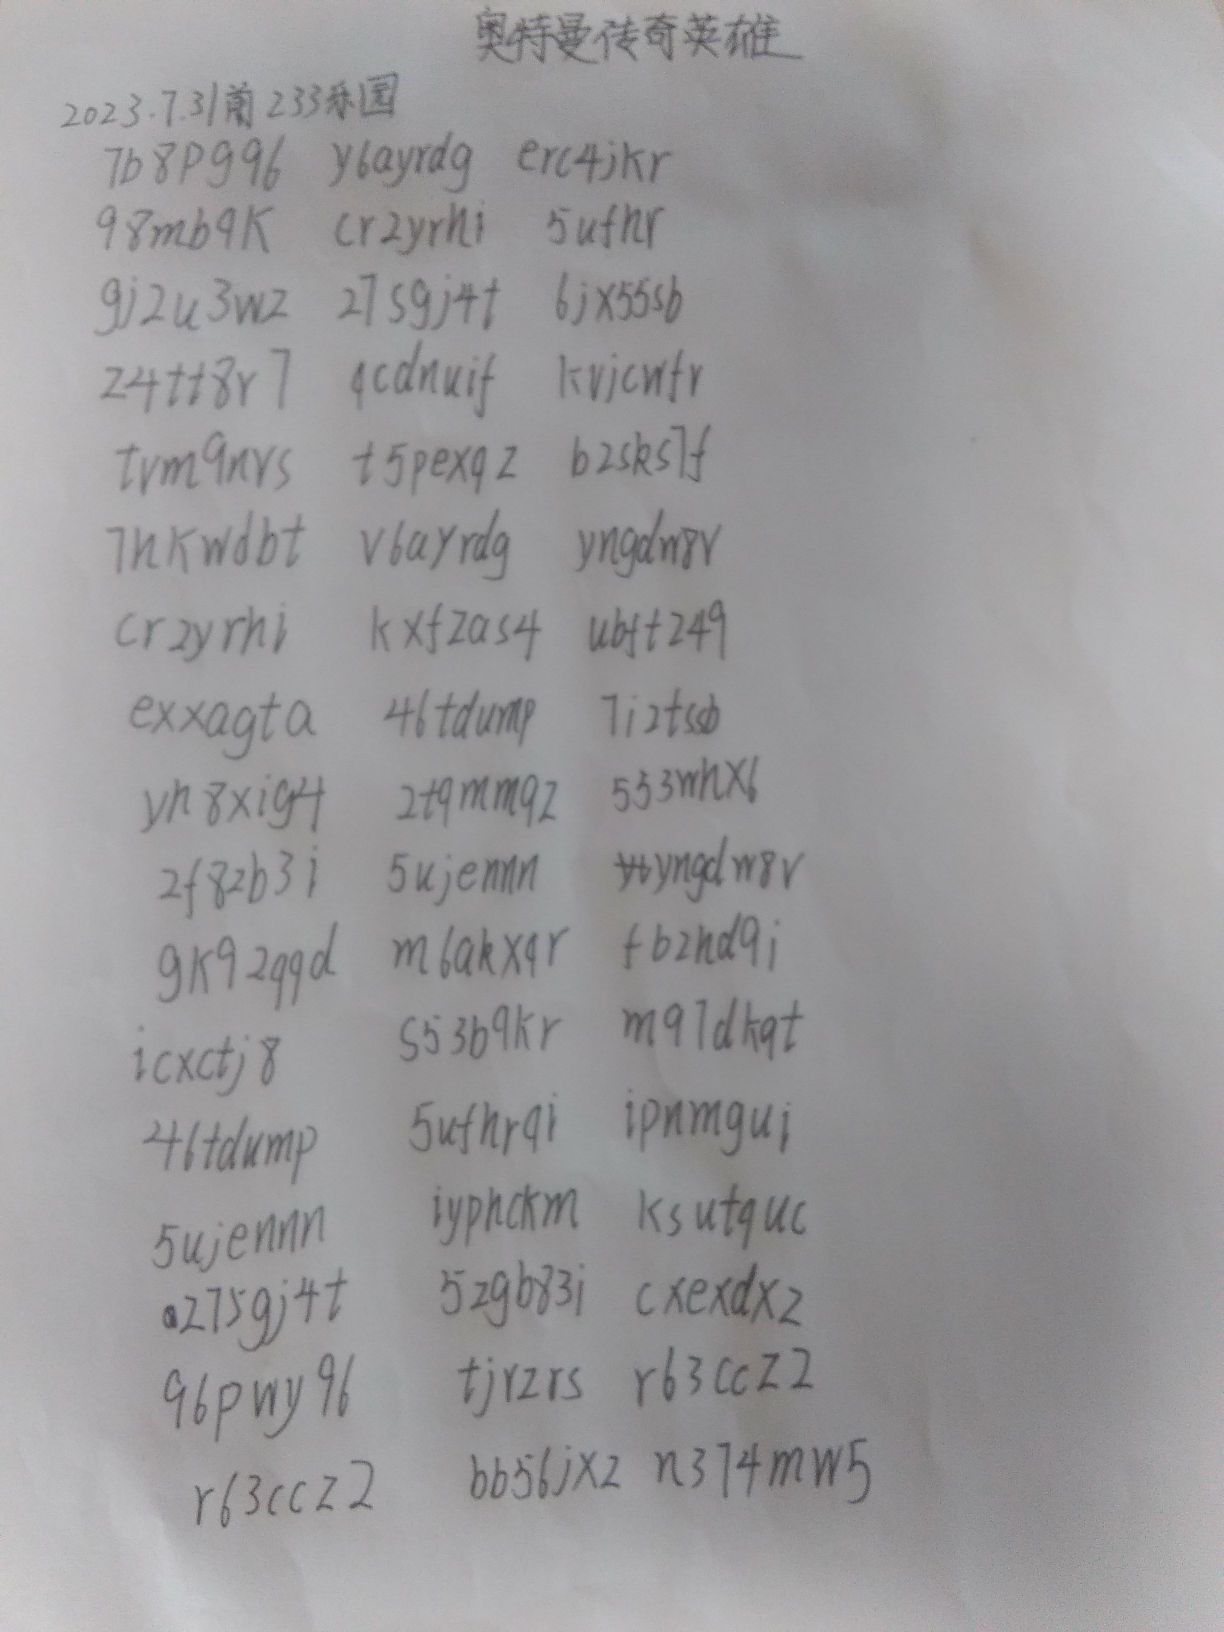 奥特曼传奇英雄
2023.7.31前 233乐园
7b8pg96 y6ayrdg erc4jkr
98mb9k cr2yrhi 5ufhr
gj2u3wz 27sgj4t 6jx55sb
z4tt8r7 qcdnuif kvjcwfr
tvm9nvs t5pexqz b2sks7f
7hkwdbt v6ayrdg yngdw8v
cr2yrhi kxfzas4 ubft249
exxagta 46tdump 7i2tssb
yh8xig4 2t9mmqz 553whx6
2f82b3i 5ujennn yngdw8v
gk92qqd m6akxqr fbzhd9i
icxctj8 s53b9kr m97dkqt
46tdump 5ufhrqi ipnmgui
5ujennn iyphckm ksutquc
275gj4t 5zgb83i cxexdxz
96pwy96 tjrzrs r63ccz2
r63ccz2 bb56jxz n374mw5